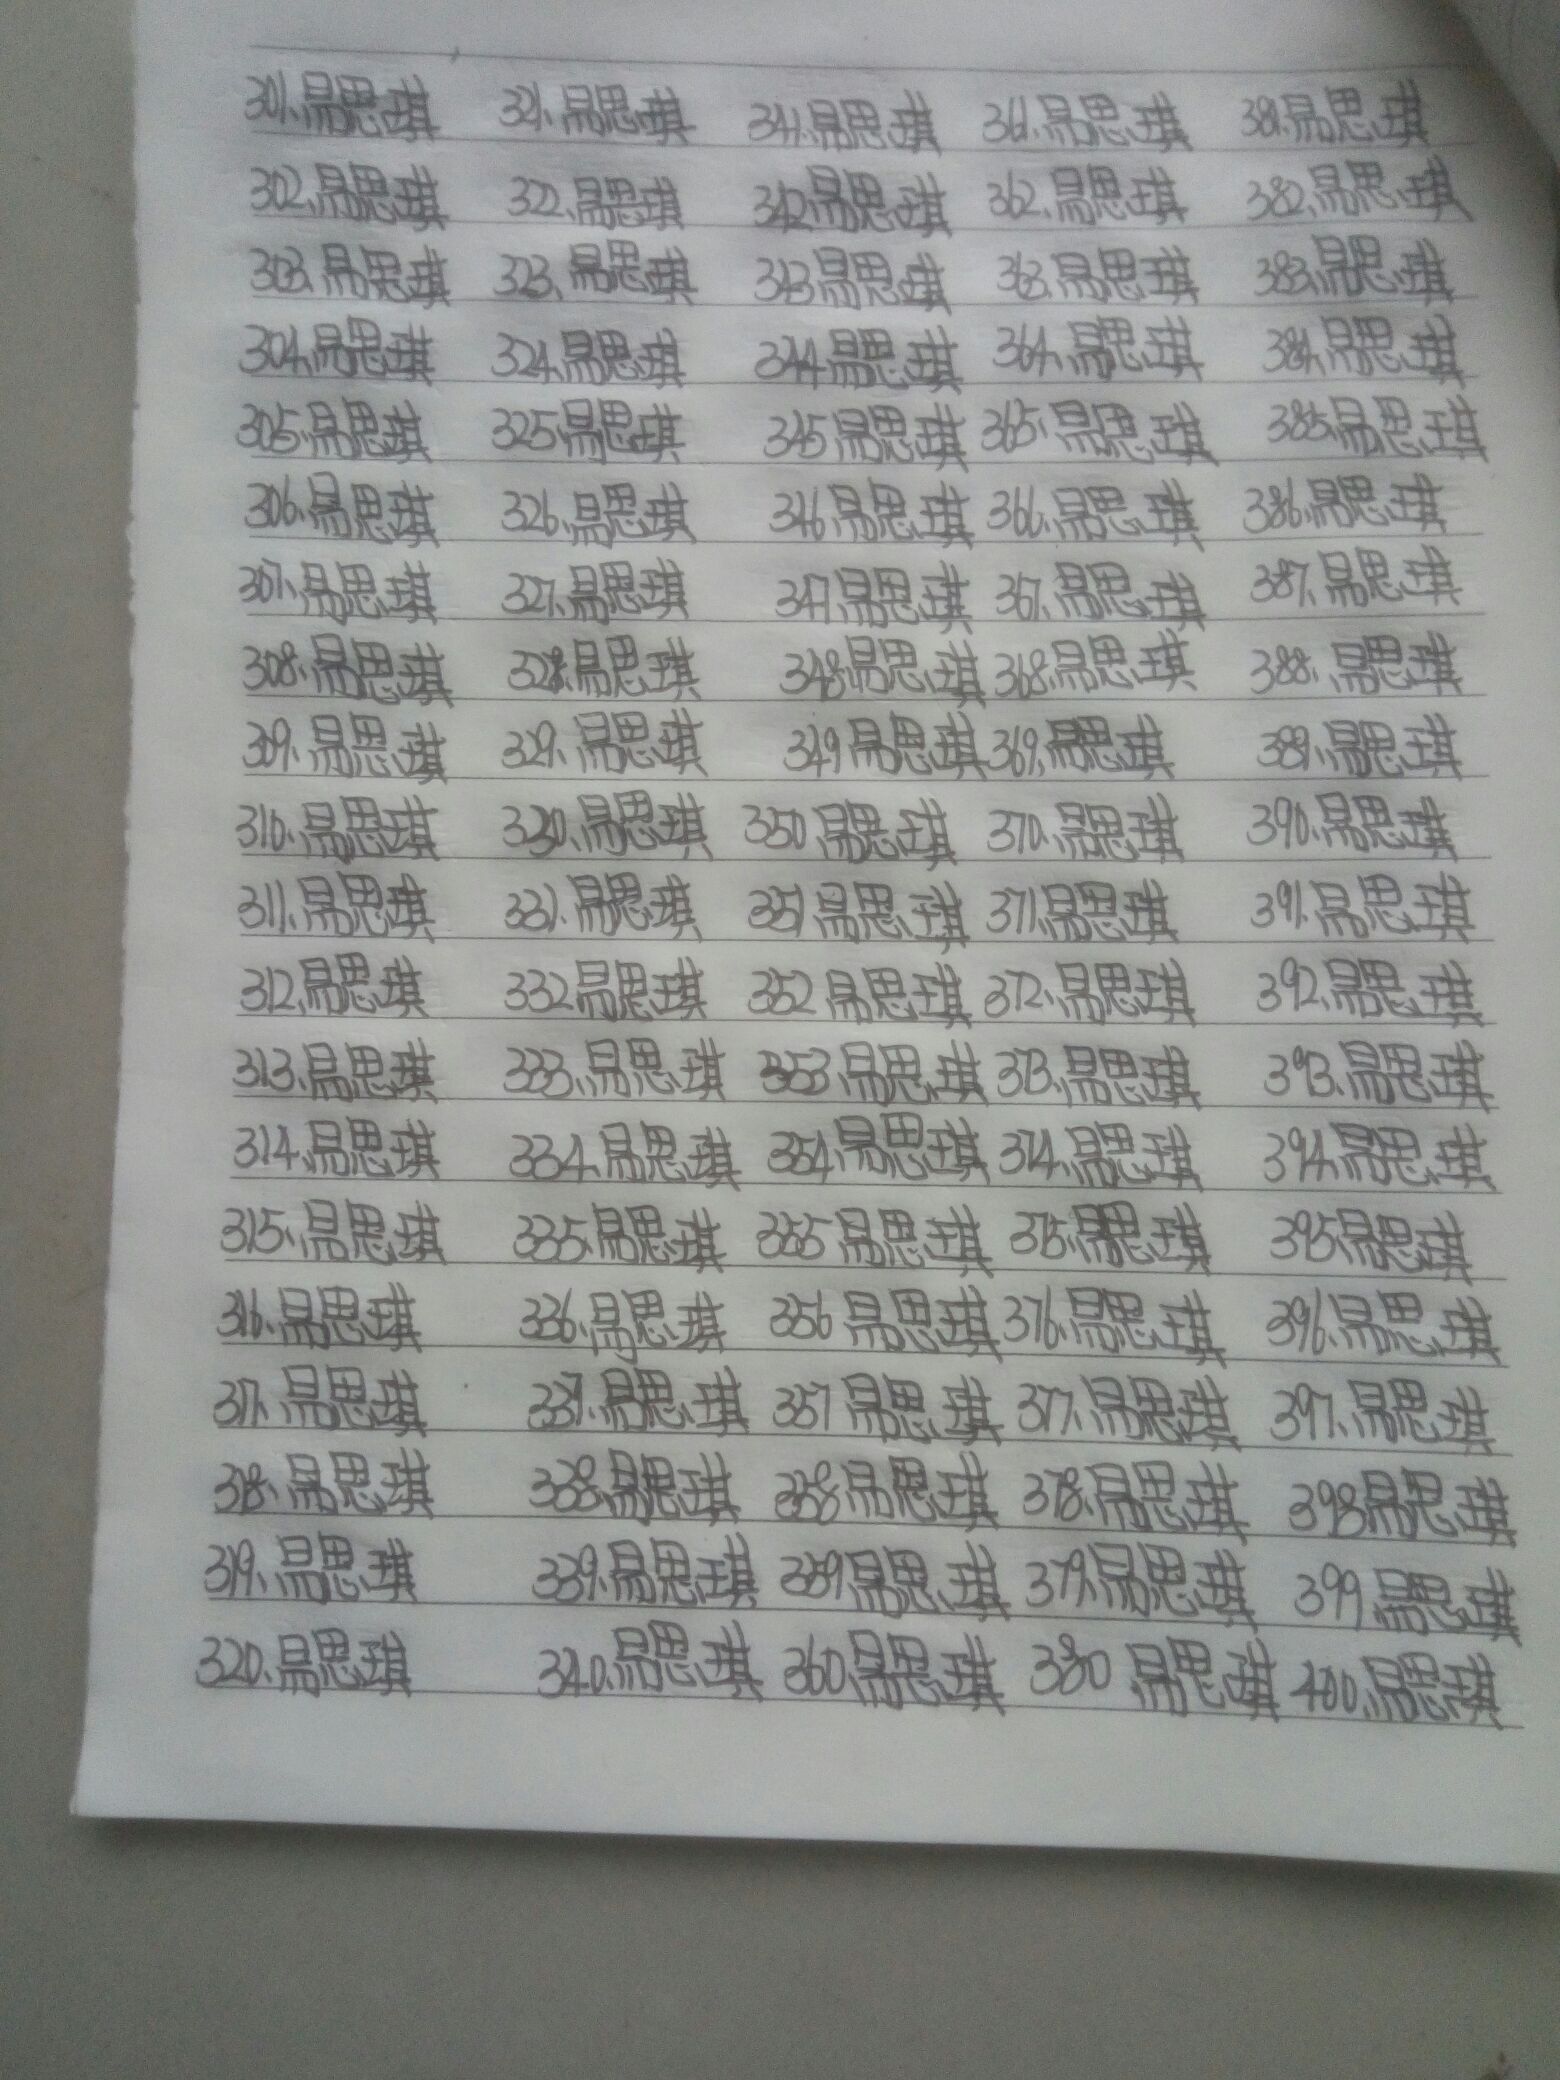 301.易思琪 321.易思琪 341.易思琪 361.易思琪 381.易思琪
302.易思琪 322.易思琪 342易思琪 362.易思琪 382.易思琪
303.易思琪 323.易思琪 343易思琪 363.易思琪 383.易思琪
304.易思琪 324.易思琪 344易思琪 364.易思琪 384.易思琪
305.易思琪 325.易思琪 345易思琪 365.易思琪 385.易思琪
306.易思琪 326.易思琪 346易思琪 366.易思琪 386.易思琪
307.易思琪 327.易思琪 347易思琪 367.易思琪 387.易思琪
308.易思琪 328.易思琪 348易思琪 368.易思琪 388.易思琪
309.易思琪 329.易思琪 349易思琪 369.易思琪 389.易思琪
310.易思琪 330.易思琪 350易思琪 370.易思琪 390.易思琪
311.易思琪 331.易思琪 351易思琪 371.易思琪 391.易思琪
312.易思琪 332易思琪 352易思琪 372.易思琪 392.易思琪
313.易思琪 333.易思琪 353易思琪 373.易思琪 393.易思琪
314.易思琪 334.易思琪 354易思琪 374.易思琪 394.易思琪
315.易思琪 335.易思琪 355易思琪 375.易思琪 395易思琪
316.易思琪 336.易思琪 356易思琪 376.易思琪 396.易思琪
317.易思琪 337.易思琪 357易思琪 377.易思琪 397.易思琪
318.易思琪 338.易思琪 358易思琪 378.易思琪 398易思琪
319.易思琪 339.易思琪 359易思琪 379.易思琪 399易思琪
320.易思琪 340.易思琪 360.易思琪 380易思琪 400.易思琪